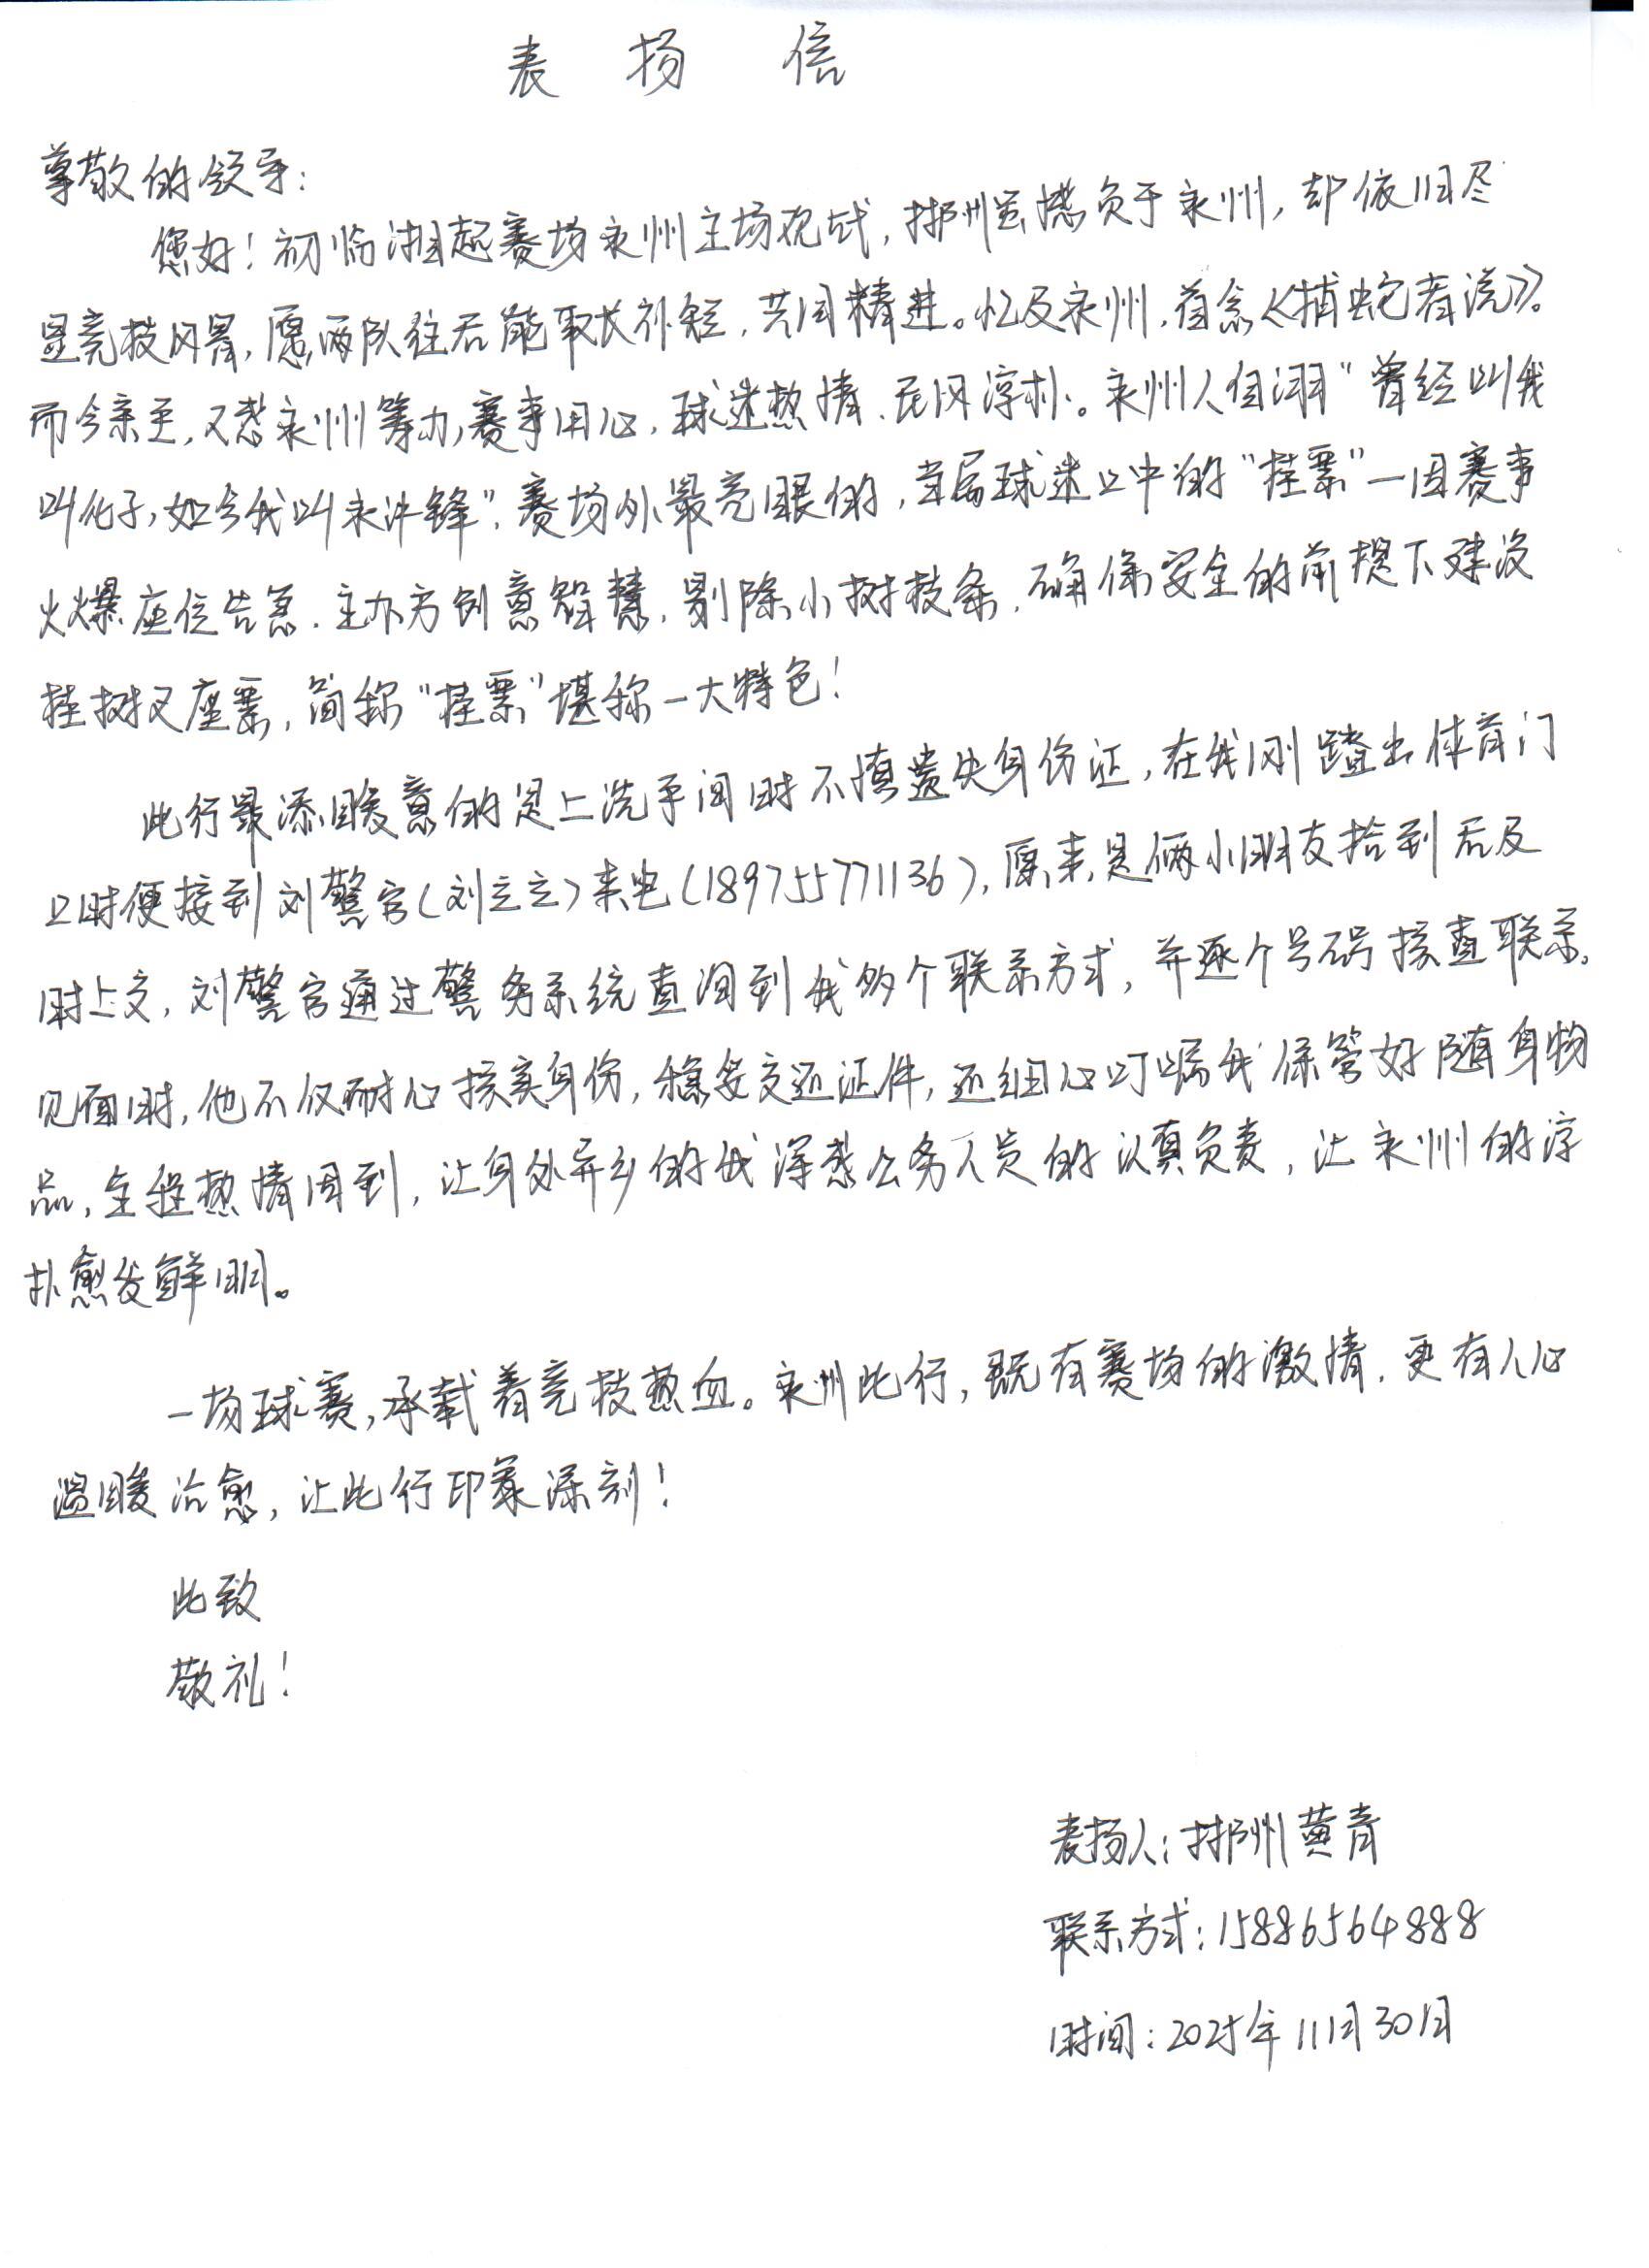 表扬信
尊敬的领导：
您好！初临湘超赛场永州主场观战，郴州虽憾负于永州，却依旧尽
显竞技风骨，愿两队往后能取长补短，共同精进。忆及永州，首念《捕蛇者说》。
而今亲至，又感永州筹办赛事用心，球迷热情、民风淳朴。永州人自诩“曾经叫我
叫化子，如今我叫永冲锋”，赛场外最亮眼的，当属球迷口中的“挂票”一因赛事
火爆座位告急，主办方创意智慧，剔除小树枝条，确保安全的前提下建设
挂树叉座票，简称“挂票”堪称一大特色！
此行最添暖意的是上洗手间时不慎遗失身份证，在我刚踏出体育门
口时便接到刘警官（刘立立）来电（189755771136），原来是俩小朋友拾到后及
时上交，刘警官通过警务系统查询到我多个联系方式，并逐个号码核查联系。
见面时，他不仅耐心核实身份，稳妥交还证件，还细心叮嘱我保管好随身物
品，全程热情周到，让身处异乡的我深感公务人员的认真负责，让永州的淳
朴愈发鲜明。
一场球赛，承载着竞技热血。永州此行，既有赛场的激情，更有人心
温暖治愈，让此行印象深刻！
此致
敬礼！
表扬人：郴州黄青
联系方式：15886564888
时间：2025年11月30日